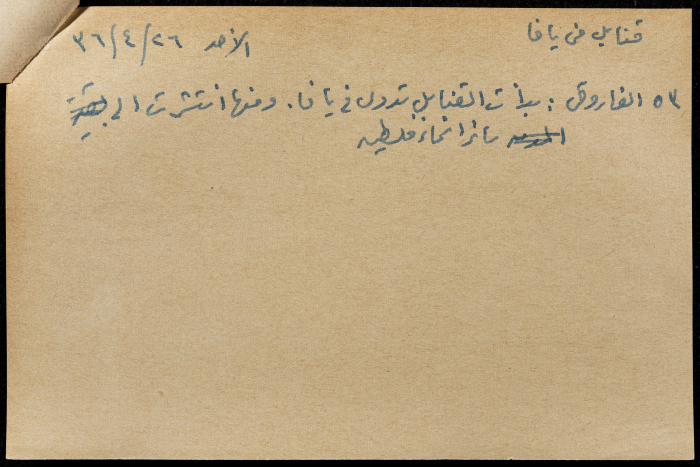 قنابل في يافا
الأحد ٢٦/٤/٣٦
٥٣ الفاروقي: بدأت القنابل تدوي في يافا. ومنها انتشرت الى
سائر انحاء فلسطين